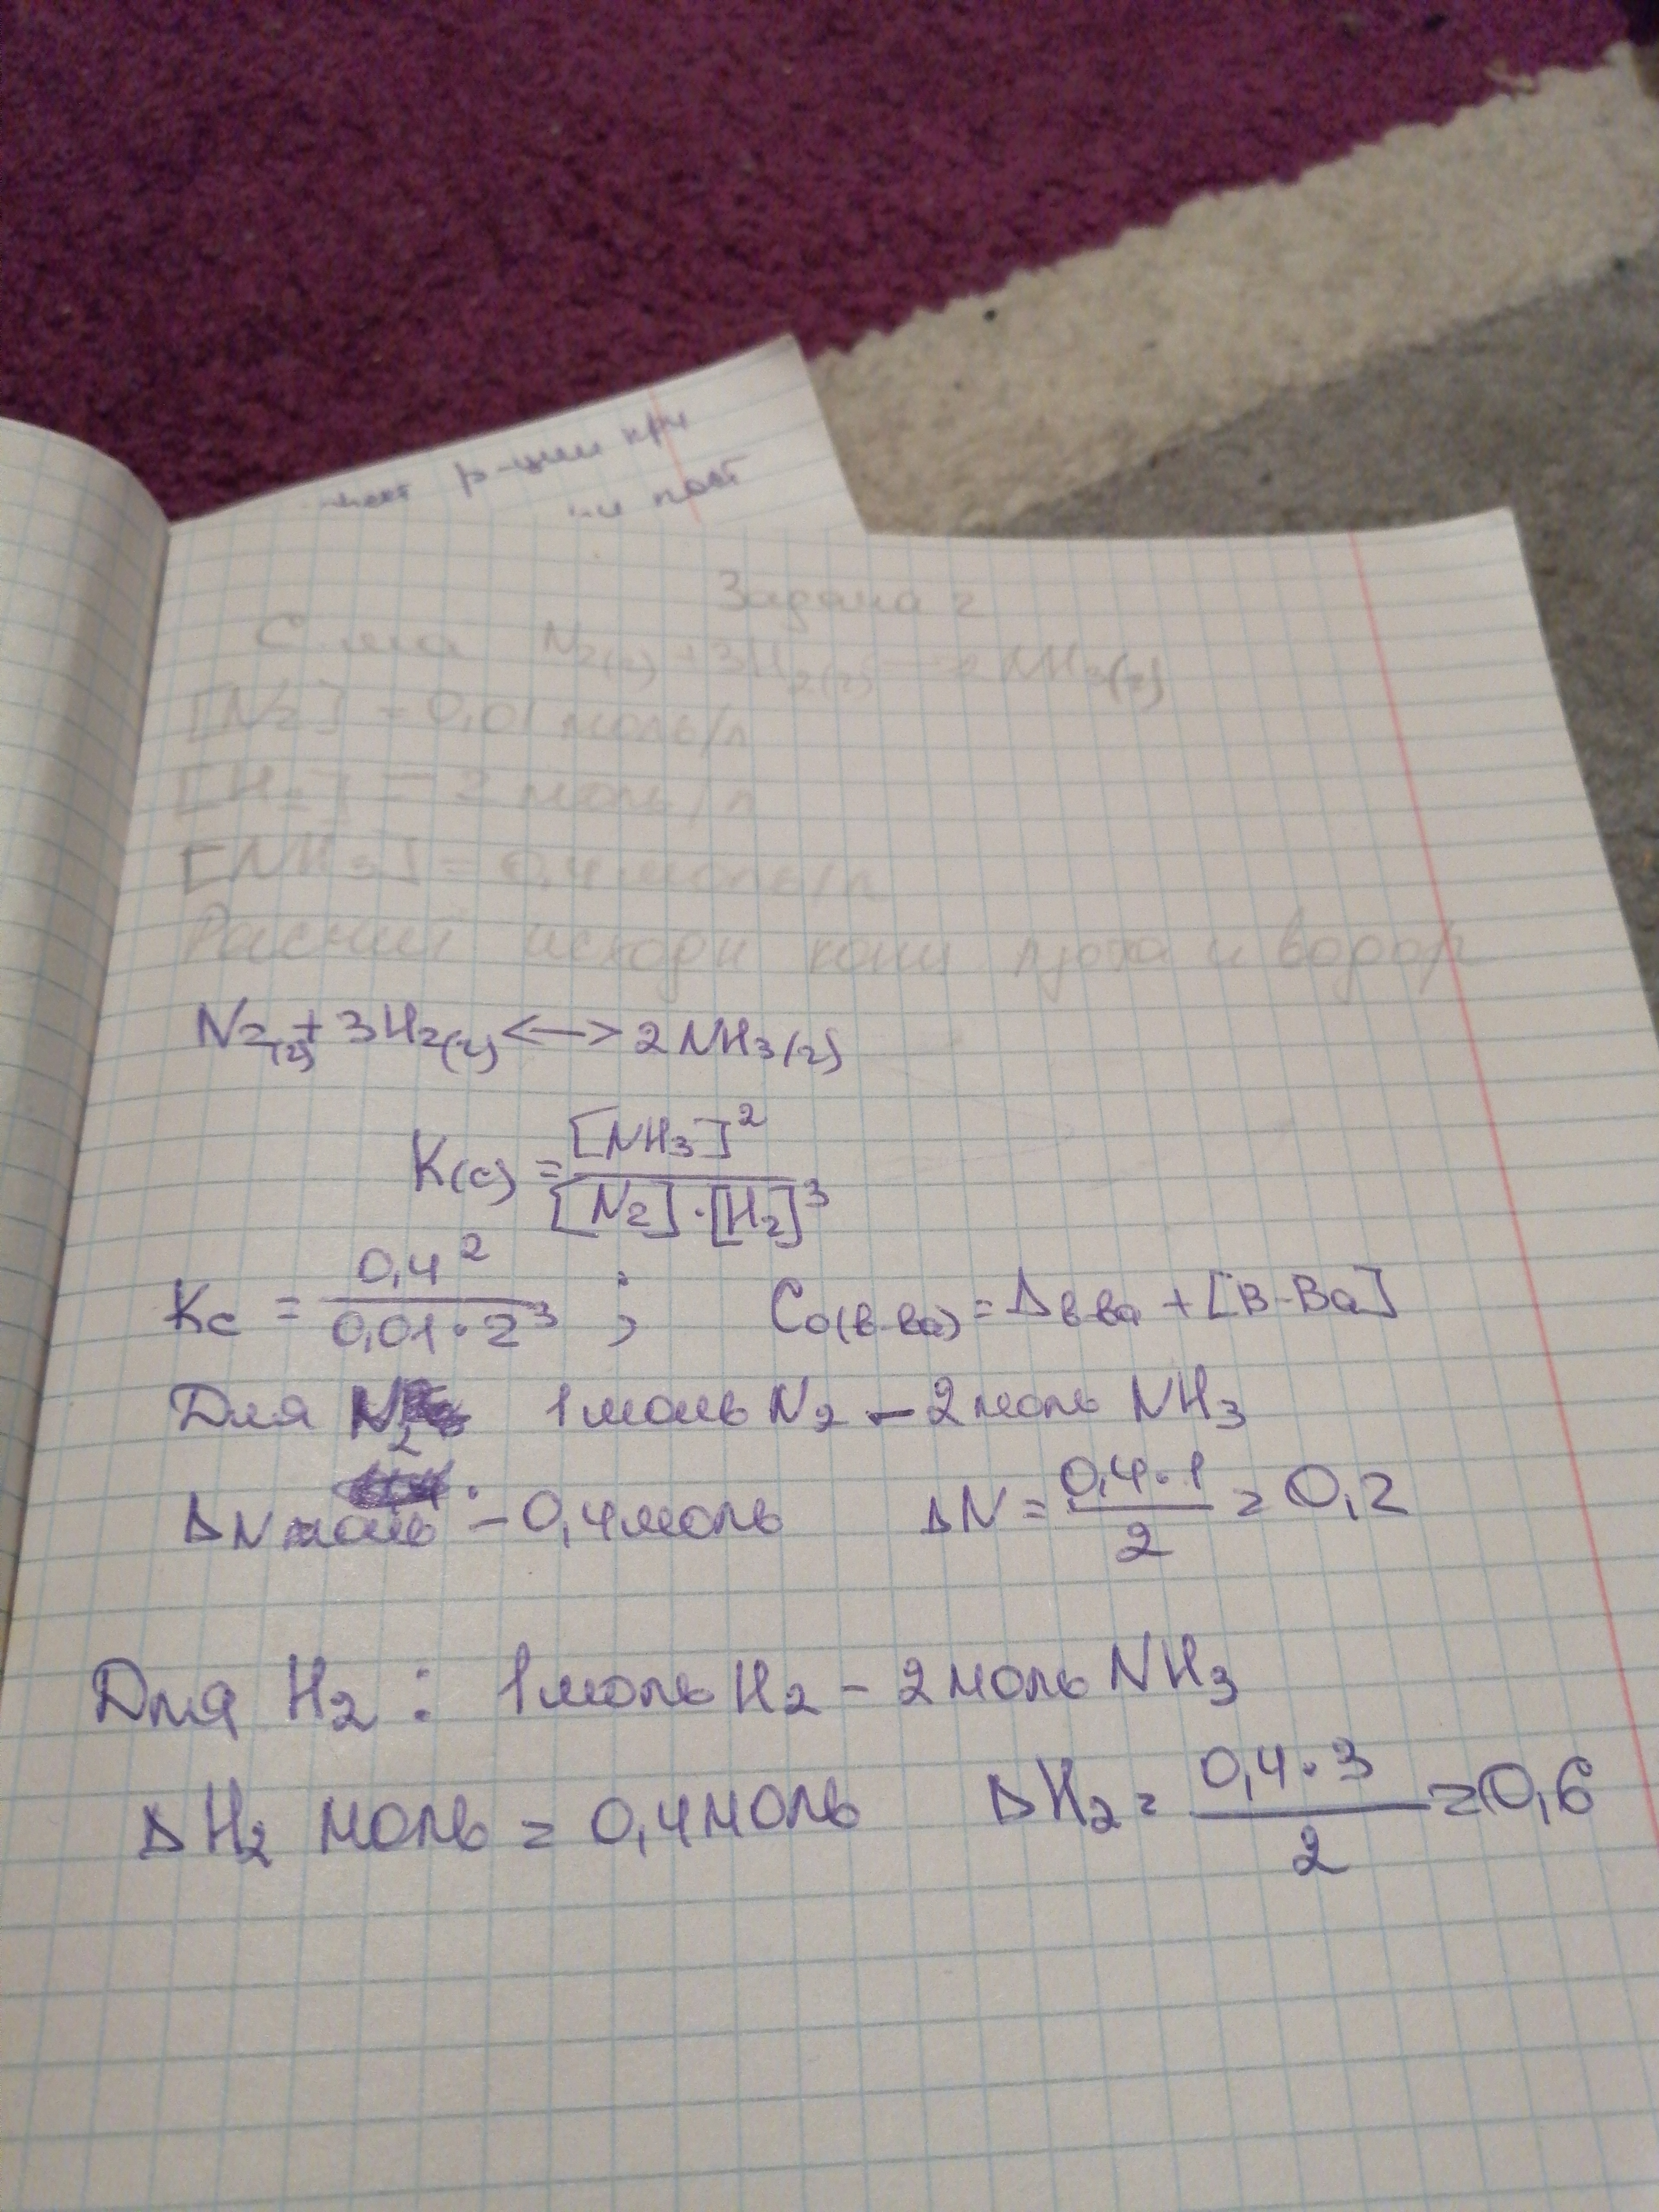 р-ции при
пост
Задача 2
N2(г) + 3H2(г) 2NH3(г)
[N2] = 0,01 моль/л
[H2] = 2 моль/л
[NH3] = 0,4 моль/л
Расчит исходн конц азота и водор
N2(г) + 3H2(г) <—> 2NH3(г)
K(c) = [NH3]² / [N2]·[H2]³
Kc = 0,4² / 0,01·2³ ; C0(в-ва) = Δв-ва + [в-ва]
Для N2 1 моль N2 – 2 моль NH3
ΔN моль – 0,4 моль ΔN = 0,4·1 / 2 = 0,2
Для H2 : 1 моль H2 – 2 моль NH3
ΔH2 моль = 0,4 моль ΔH2 = 0,4·3 / 2 = 0,6